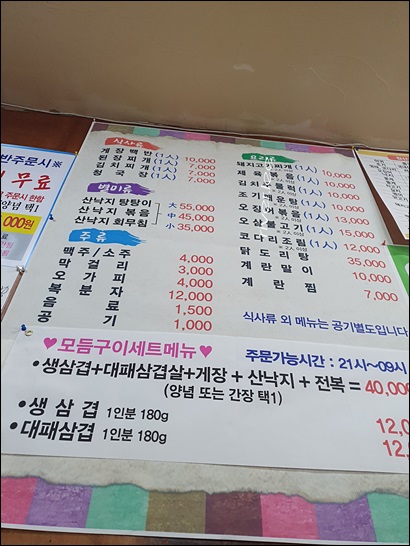 반주문시※
무료
주문시 한함
양념 택1
000원
식사류
게장 백반 (1人) 10,000
된장찌개 (1人) 7,000
김치찌개 (1人) 7,000
청 국 장 (1人) 7,000
별미류
산낙지 탕탕이 大 55,000
산낙지 볶음 中 45,000
산낙지 회무침 小 35,000
주류
맥주/소주 4,000
막 걸 리 3,000
오 가 피 4,000
복 분 자 12,000
음 료 1,500
공 기 1,000
요리류
돼지고기찌개 (1人) 10,000
제 육 볶 음 (1人) 10,000
조기매운탕 (1人) 10,000
오징어볶음 (1人) 13,000
오삼불고기 (1人) 15,000
코다리조림 (1人) 12,000
닭 도 리 탕 35,000
계 란 말 이 10,000
계 란 찜 7,000
식사류 외 메뉴는 공기별도입니다
♥모듬구이세트메뉴♥ 주문가능시간 : 21시~09시
•생삼겹+대패삼겹살+게장 + 산낙지 + 전복 = 40,000
(양념 또는 간장 택1)
•생 삼 겹 1인분 180g 12,0
•대패삼겹 1인분 180g 12,